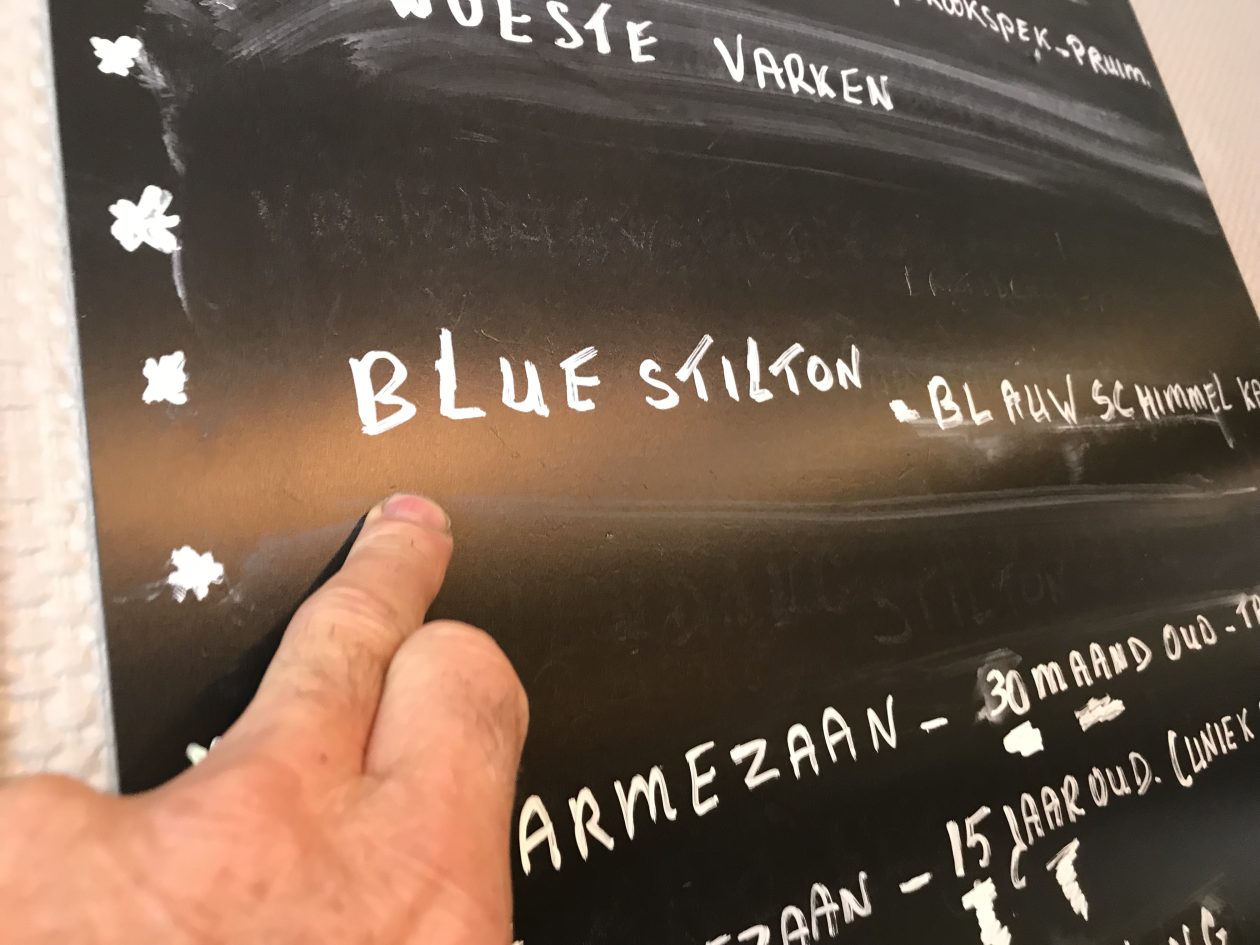 WOESTE VARKEN ROOKSPEK-PRUIM.
BLUE STILTON - BLAUW SCHIMMEL KA
STILTON
ARMEZAAN - 30 MAAND OUD -
EZAAN - 15 JAAR OUD. (UNIEK
NG